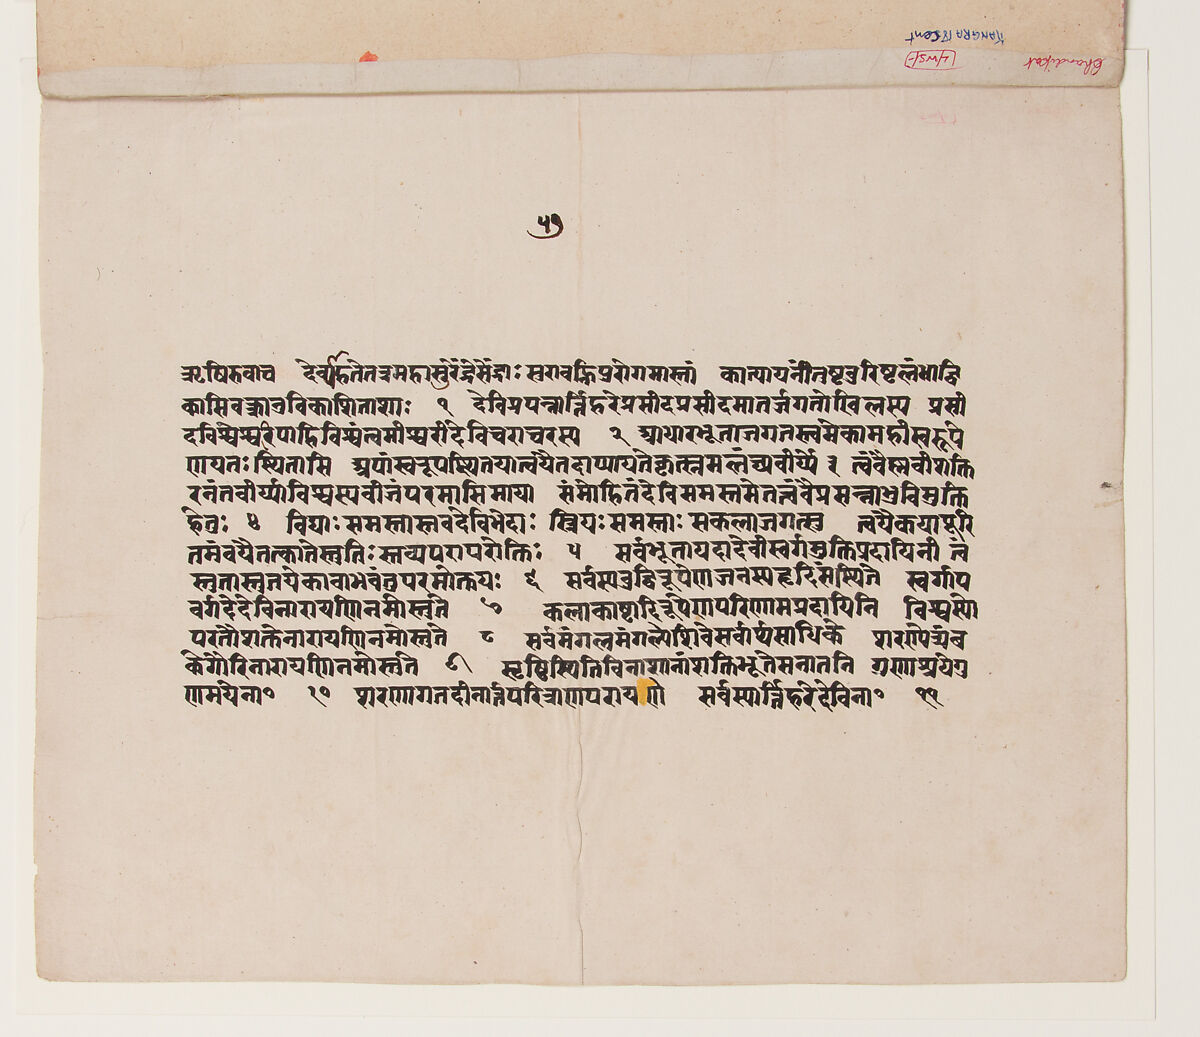 Chandipat
KANGRA 18 Cent
५७
ऋषिरुवाच देव्याहतेतत्रमहासुरेंद्रेसेंद्राः सुरावह्निपुरोगमास्तां कात्यायनींतुष्टुवुरिष्टलंभाद्वि
कासिवक्त्राब्जविकाशिताशाः १ देविप्रपन्नार्त्तिहरेप्रसीदप्रसीदमातर्जगतोखिलस्य प्रसी
दविश्वेश्वरिपाहिविश्वंत्वमीश्वरीदेविचराचरस्य २ आधारभूताजगतस्त्वमेकामहीस्वरूपे
णयतःस्थितासि अपांस्वरूपस्थितयात्वयैतदाप्यायतेकृत्स्नमलंघ्यवीर्ये ३ त्वंवैस्नवीशक्ति
रनंतवीर्य्याविश्वस्यवीजंपरमासिमाया संमोहितंदेविसमस्तमेतत्वंवैप्रसन्नाभुविमुक्ति
हेतुः ४ विद्याःसमस्तास्तवदेविभेदाः स्त्रियःसमस्ताःसकलाजगत्सु त्वयैकयापूरि
तमंवयैतत्कातेस्तुतिःस्तव्यपरापरोक्तिः ५ सर्वभूतायदादेवीस्वर्गभुक्तिप्रदायिनी त्वं
स्तुतास्तुतयेकावाभवंतुपरमोक्तयः ६ सर्वस्यवुद्धिरूपेणजनस्यहृदिसंस्थिते स्वर्गाप
वर्गदेदेविनारायणिनमोस्तुते ७ कलाकाष्ठादिरूपेणपरिणामप्रदायिनि विश्वस्यो
परतौशक्तेनारायणिनमोस्तुते ८ सर्वमंगलमंगल्येशिवेसर्वार्थसाधिके शरण्येत्र्यंव
केगौरिनारायणिनमोस्तुते ९ सृष्टिस्थितिविनाशानांशक्तिभूतेसनातनि गुणाश्रयेगु
णमयेना० १० शरणागतदीनार्त्तपरित्राणपरायणे सर्वस्यार्त्तिहरेदेविना० ११